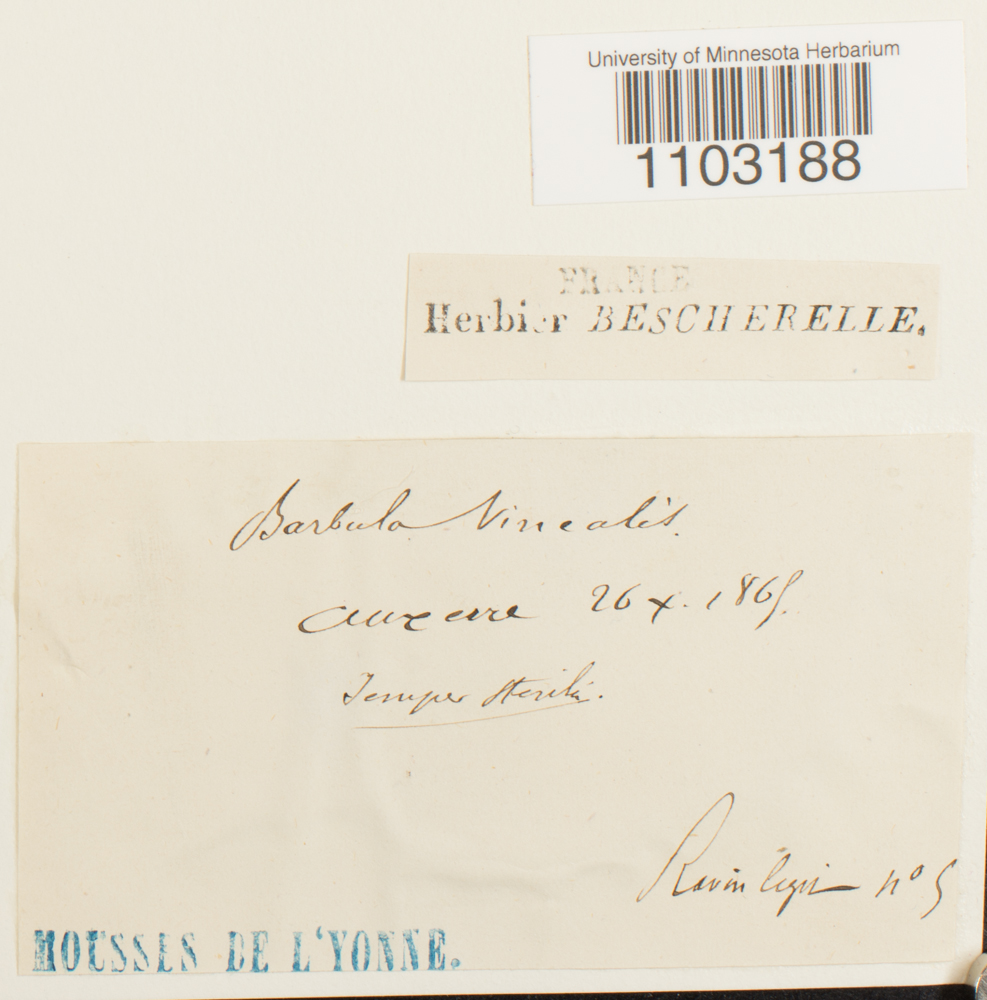 University of Minnesota Herbarium
1103188
FRANCE
Herbier BESCHERELLE.
Barbula Vinealis.
auxerre 26 x. 1865.
Semper sterilis.
Ravin legit no 5
MOUSSES DE L'YONNE.